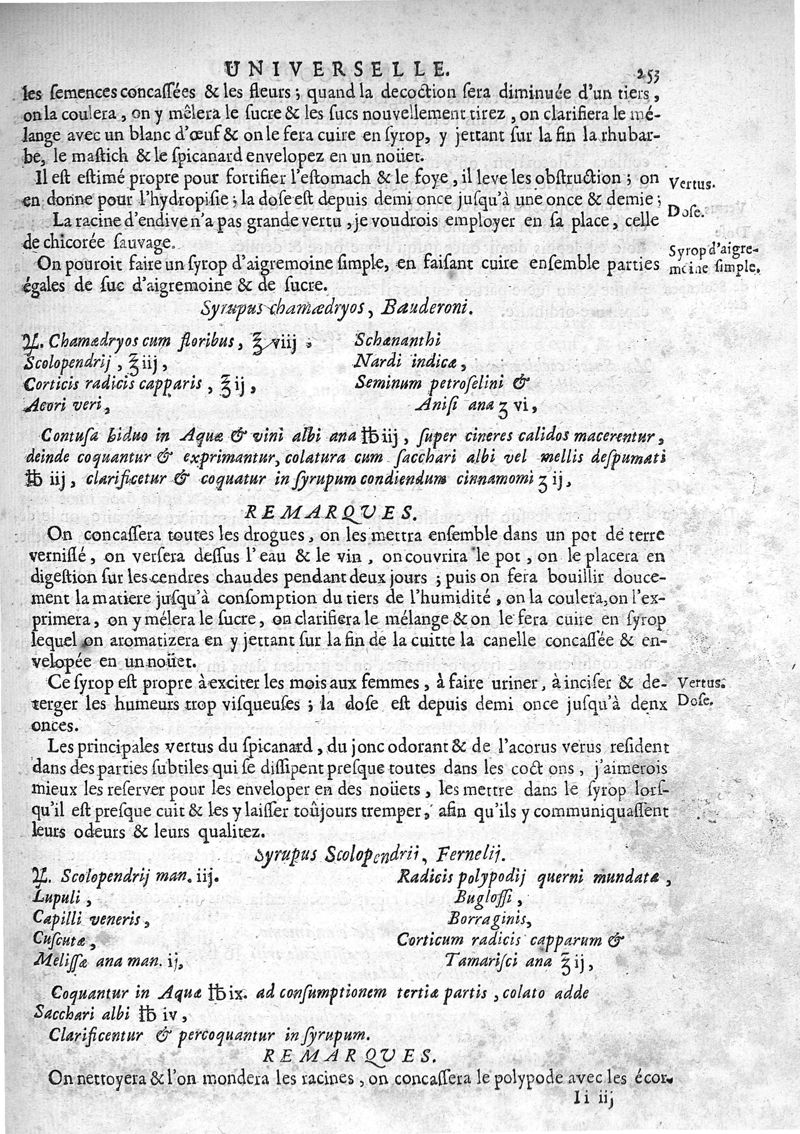 UNIVERSELLE. 253
les ſemences concaſſées & les fleurs ; quand la decoction ſera diminuée d'un tiers,
on la coulera, on y mêlera le sucre & les ſucs nouvellement tirez, on clarifiera le mé-
lange avec un blanc d'œuf & on le fera cuire en ſyrop, y jettant ſur la fin la rhubar-
be, le maſtich & le ſpicanard envelopez en un noüet.
Il eſt eſtimé propre pour fortifier l'eſtomach & le foye, il leve les obſtruction ; on
Vertus.
en donne pour l'hydropiſie ; la doſe eſt depuis demi once juſqu'à une once & demie ;
Doſe.
La racine d'endive n'a pas grande vertu, je voudrois employer en ſa place, celle
de chicorée ſauvage.
On pouroit faire un ſyrop d'aigremoine ſimple, en faiſant cuire enſemble parties
égales de ſuc d'aigremoine & de ſucre.
Syrop d'aigre-
moine ſimple.
Syrupus chamædryos, Bauderoni.
℞. Chamædryos cum floribus, ℥ viij.
Scolopendrij, ℥ iij,
Corticis radicis capparis, ℥ ij,
Acori veri,
Schænanthi
Nardi indicæ,
Seminum petroſelini &
Aniſi ana ʒ vi,
Contuſa biduo in Aquæ & vini albi ana ℔ iij, ſuper cineres calidos macerentur,
deinde coquantur & exprimantur, colatura cum ſacchari albi vel mellis deſpumati
℔ iij, clarificetur & coquatur in ſyrupum condiendum cinnamomi ʒ ij,
REMARQUES.
On concaſſera toutes les drogues, on les mettra enſemble dans un pot de terre
verniſſé, on verſera deſſus l'eau & le vin, on couvrira le pot, on le placera en
digeſtion ſur les cendres chaudes pendant deux jours ; puis on fera bouillir douce-
ment la matiere juſqu'à conſomption du tiers de l'humidité, on la coulera, on l'ex-
primera, on y mélera le ſucre, on clarifiera le mélange & on le fera cuire en ſyrop
lequel on aromatizera en y jettant ſur la fin de la cuitte la canelle concaſſée & en-
velopée en un noüet.
Ce ſyrop eſt propre à exciter les mois aux femmes, à faire uriner, à inciſer & de-
Vertus.
terger les humeurs trop viſqueuſes ; la doſe eſt depuis demi once juſqu'à denx
Doſe.
onces.
Les principales vertus du ſpicanard, du jonc odorant & de l'acorus verus reſident
dans des parties ſubtiles qui ſe diſſipent preſque toutes dans les coct ons, j'aimerois
mieux les reſerver pour les enveloper en des noüets, les mettre dans le ſyrop lorſ-
qu'il eſt preſque cuit & les y laiſſer toûjours tremper, afin qu'ils y communiquaſſent
leurs odeurs & leurs qualitez.
Syrupus Scolopendrii, Fernelij.
℞. Scolopendrij man. iij.
Lupuli,
Capilli veneris,
Cuſcutæ,
Meliſſæ ana man. ij,
Radicis polypodij querni mundatæ,
Bugloſſi,
Borraginis,
Corticum radicis capparum &
Tamariſci ana ℥ ij,
Coquantur in Aquæ ℔ ix. ad conſumptionem tertiæ partis, colato adde
Sacchari albi ℔ iv,
Clarificentur & percoquantur in ſyrupum.
REMARQUES.
On nettoyera & l'on mondera les racines, on concaſſera le polypode avec les écor-
Ii iij